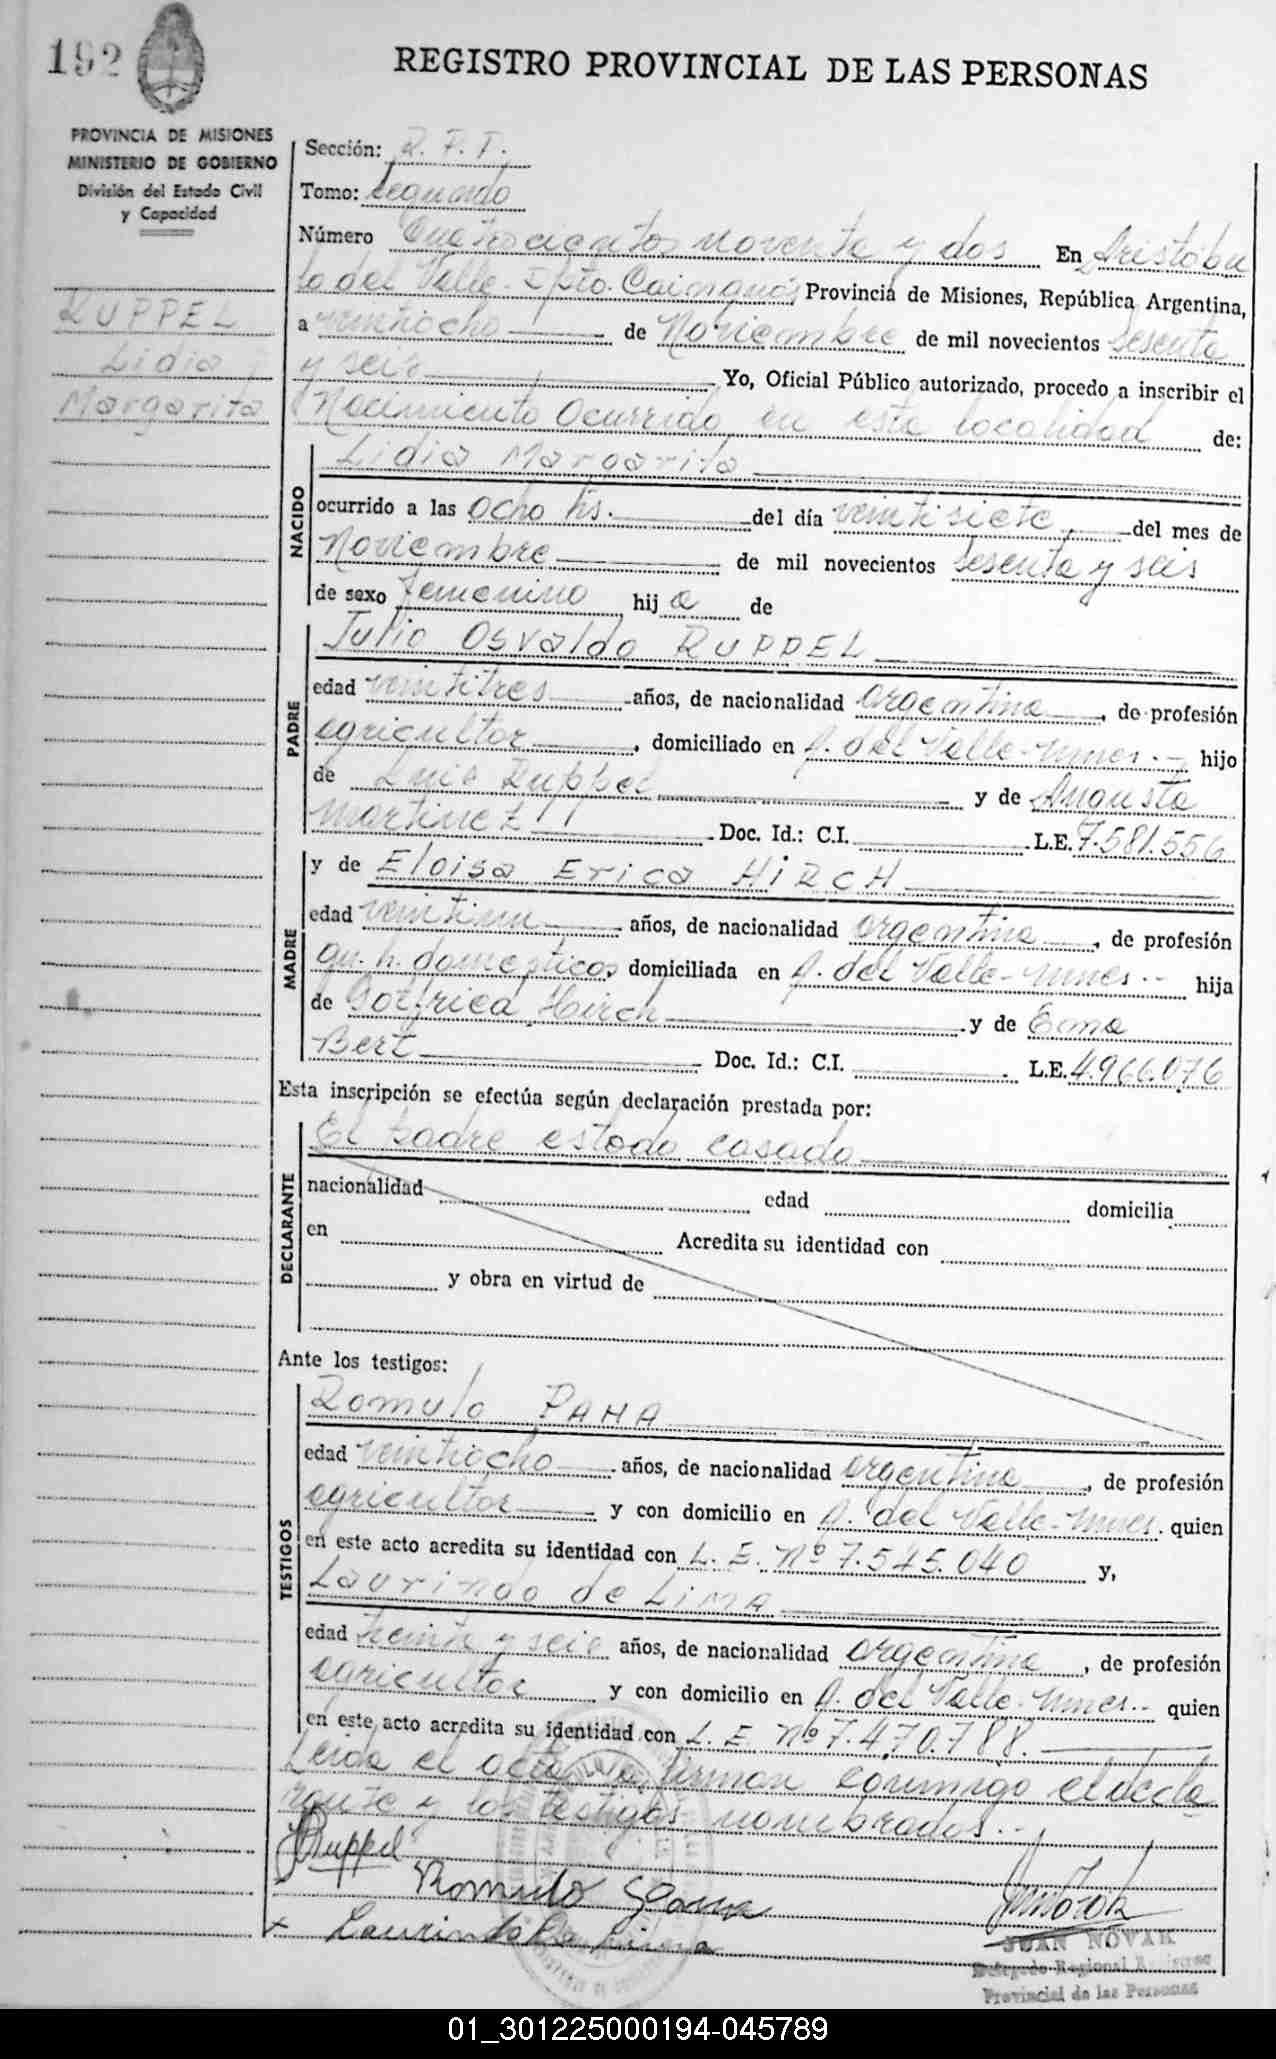 192
REGISTRO PROVINCIAL DE LAS PERSONAS
PROVINCIA DE MISIONES
MINISTERIO DE GOBIERNO
División del Estado Civil
y Capacidad
RUPPEL
Lidia
Margarita
Sección: R. P. P.
Tomo: Segundo
Número Cuatrocientos noventa y dos En Aristóbu
lo del Valle - Dpto. Cainguás Provincia de Misiones, República Argentina,
a veintiocho de Noviembre de mil novecientos sesenta
y seis Yo, Oficial Público autorizado, procedo a inscribir el
Nacimiento Ocurrido en esta localidad de:
NACIDO
Lidia Margarita
ocurrido a las ocho hs. del día veintisiete del mes de
Noviembre de mil novecientos sesenta y seis
de sexo femenino hij a de
PADRE
Julio Osvaldo RUPPEL
edad veintitres años, de nacionalidad argentina, de profesión
agricultor, domiciliado en A. del Valle - Mnes. - hijo
de Luis Ruppel y de Augusta
Martinez Doc. Id.: C.I. L.E. 7.581.556
MADRE
y de Eloisa Erica HIRCH
edad veintiun años, de nacionalidad argentina, de profesión
qu. h. domesticos domiciliada en A. del Valle - Mnes. - hija
de Gotfried Hirch y de Ema
Bert Doc. Id.: C.I. L.E. 4.966.076
Esta inscripción se efectúa según declaración prestada por:
DECLARANTE
El padre estado casado
nacionalidad edad domicilia
en Acredita su identidad con
y obra en virtud de
Ante los testigos:
TESTIGOS
Romulo PAHA
edad veintiocho años, de nacionalidad argentina, de profesión
agricultor y con domicilio en A. del Valle - Mnes. quien
en este acto acredita su identidad con L. E. Nº 7.545.040 y,
Laurindo de LIMA
edad treinta y seis años, de nacionalidad argentina, de profesión
agricultor y con domicilio en A. del Valle - Mnes. - quien
en este acto acredita su identidad con L. E. Nº 7.470.788.
Leida el acta la firman conmigo el decla
rante y los testigos nombrados. -
Ruppel
Romulo
Laurindo de Lima
JUAN NOVAK
Delegado Regional Registro
Provincial de las Personas
01_301225000194-045789